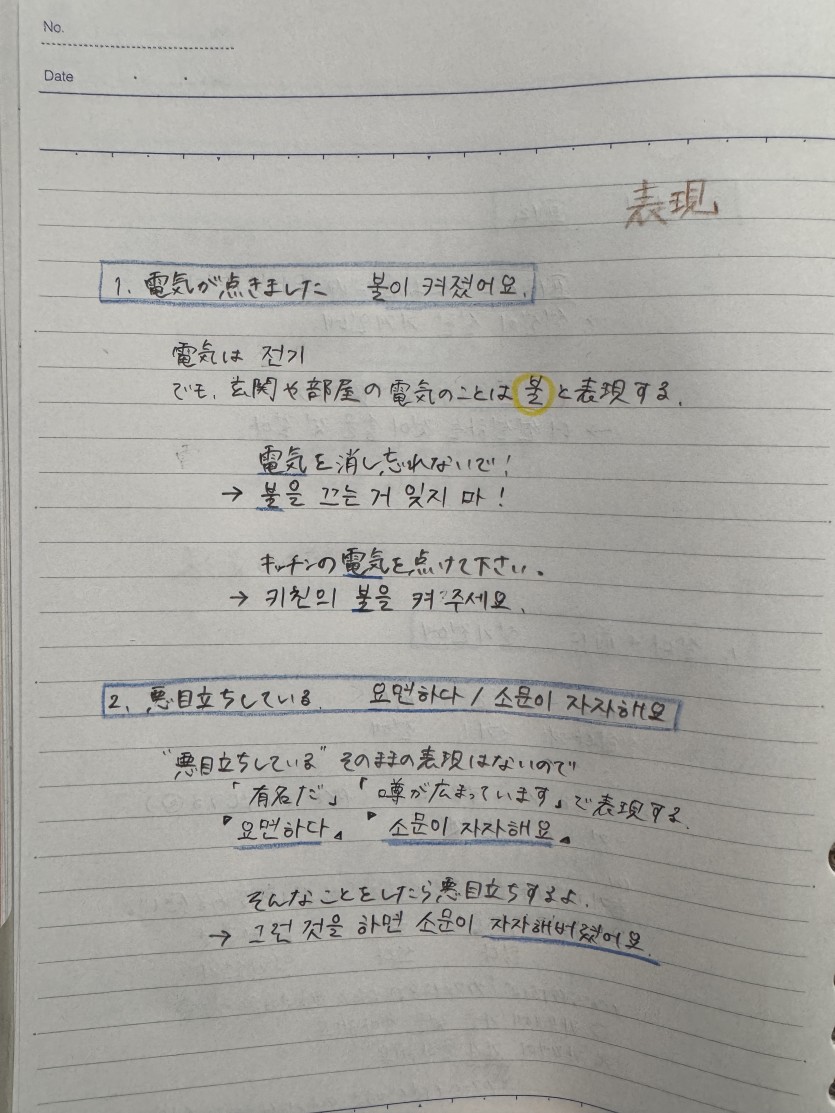 No.
Date
表現
1. 電気が点きました 불이 켜졌어요.
電気は 전기
でも、玄関や部屋の電気のことは 불 と表現する.
電気を消し忘れないで!
→ 불을 끄는 거 잊지 마!
キッチンの電気を点けて下さい。
→ 키친의 불을 켜 주세요.
2. 悪目立ちしている. 요면하다 / 소문이 자자해요
"悪目立ちしている" そのままの表現はないので
「有名だ」「噂が広まっています」で表現する.
『요면하다』『소문이 자자해요』
そんなことをしたら悪目立ちするよ.
→ 그런 것을 하면 소문이 자자해버렸어요.